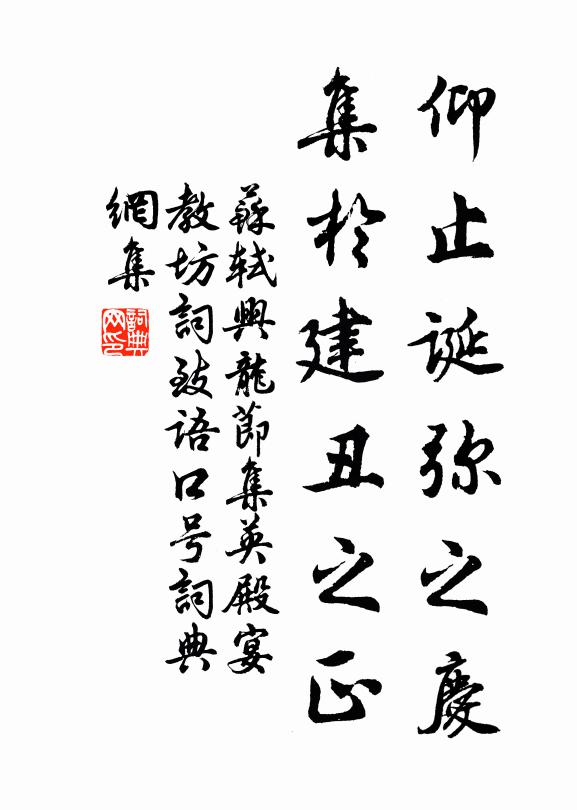 仰止誕弥之慶
集於建丑之正
蘇軾興龍節集英殿宴
教坊詞致语口号詞典
網集
詞典
网印